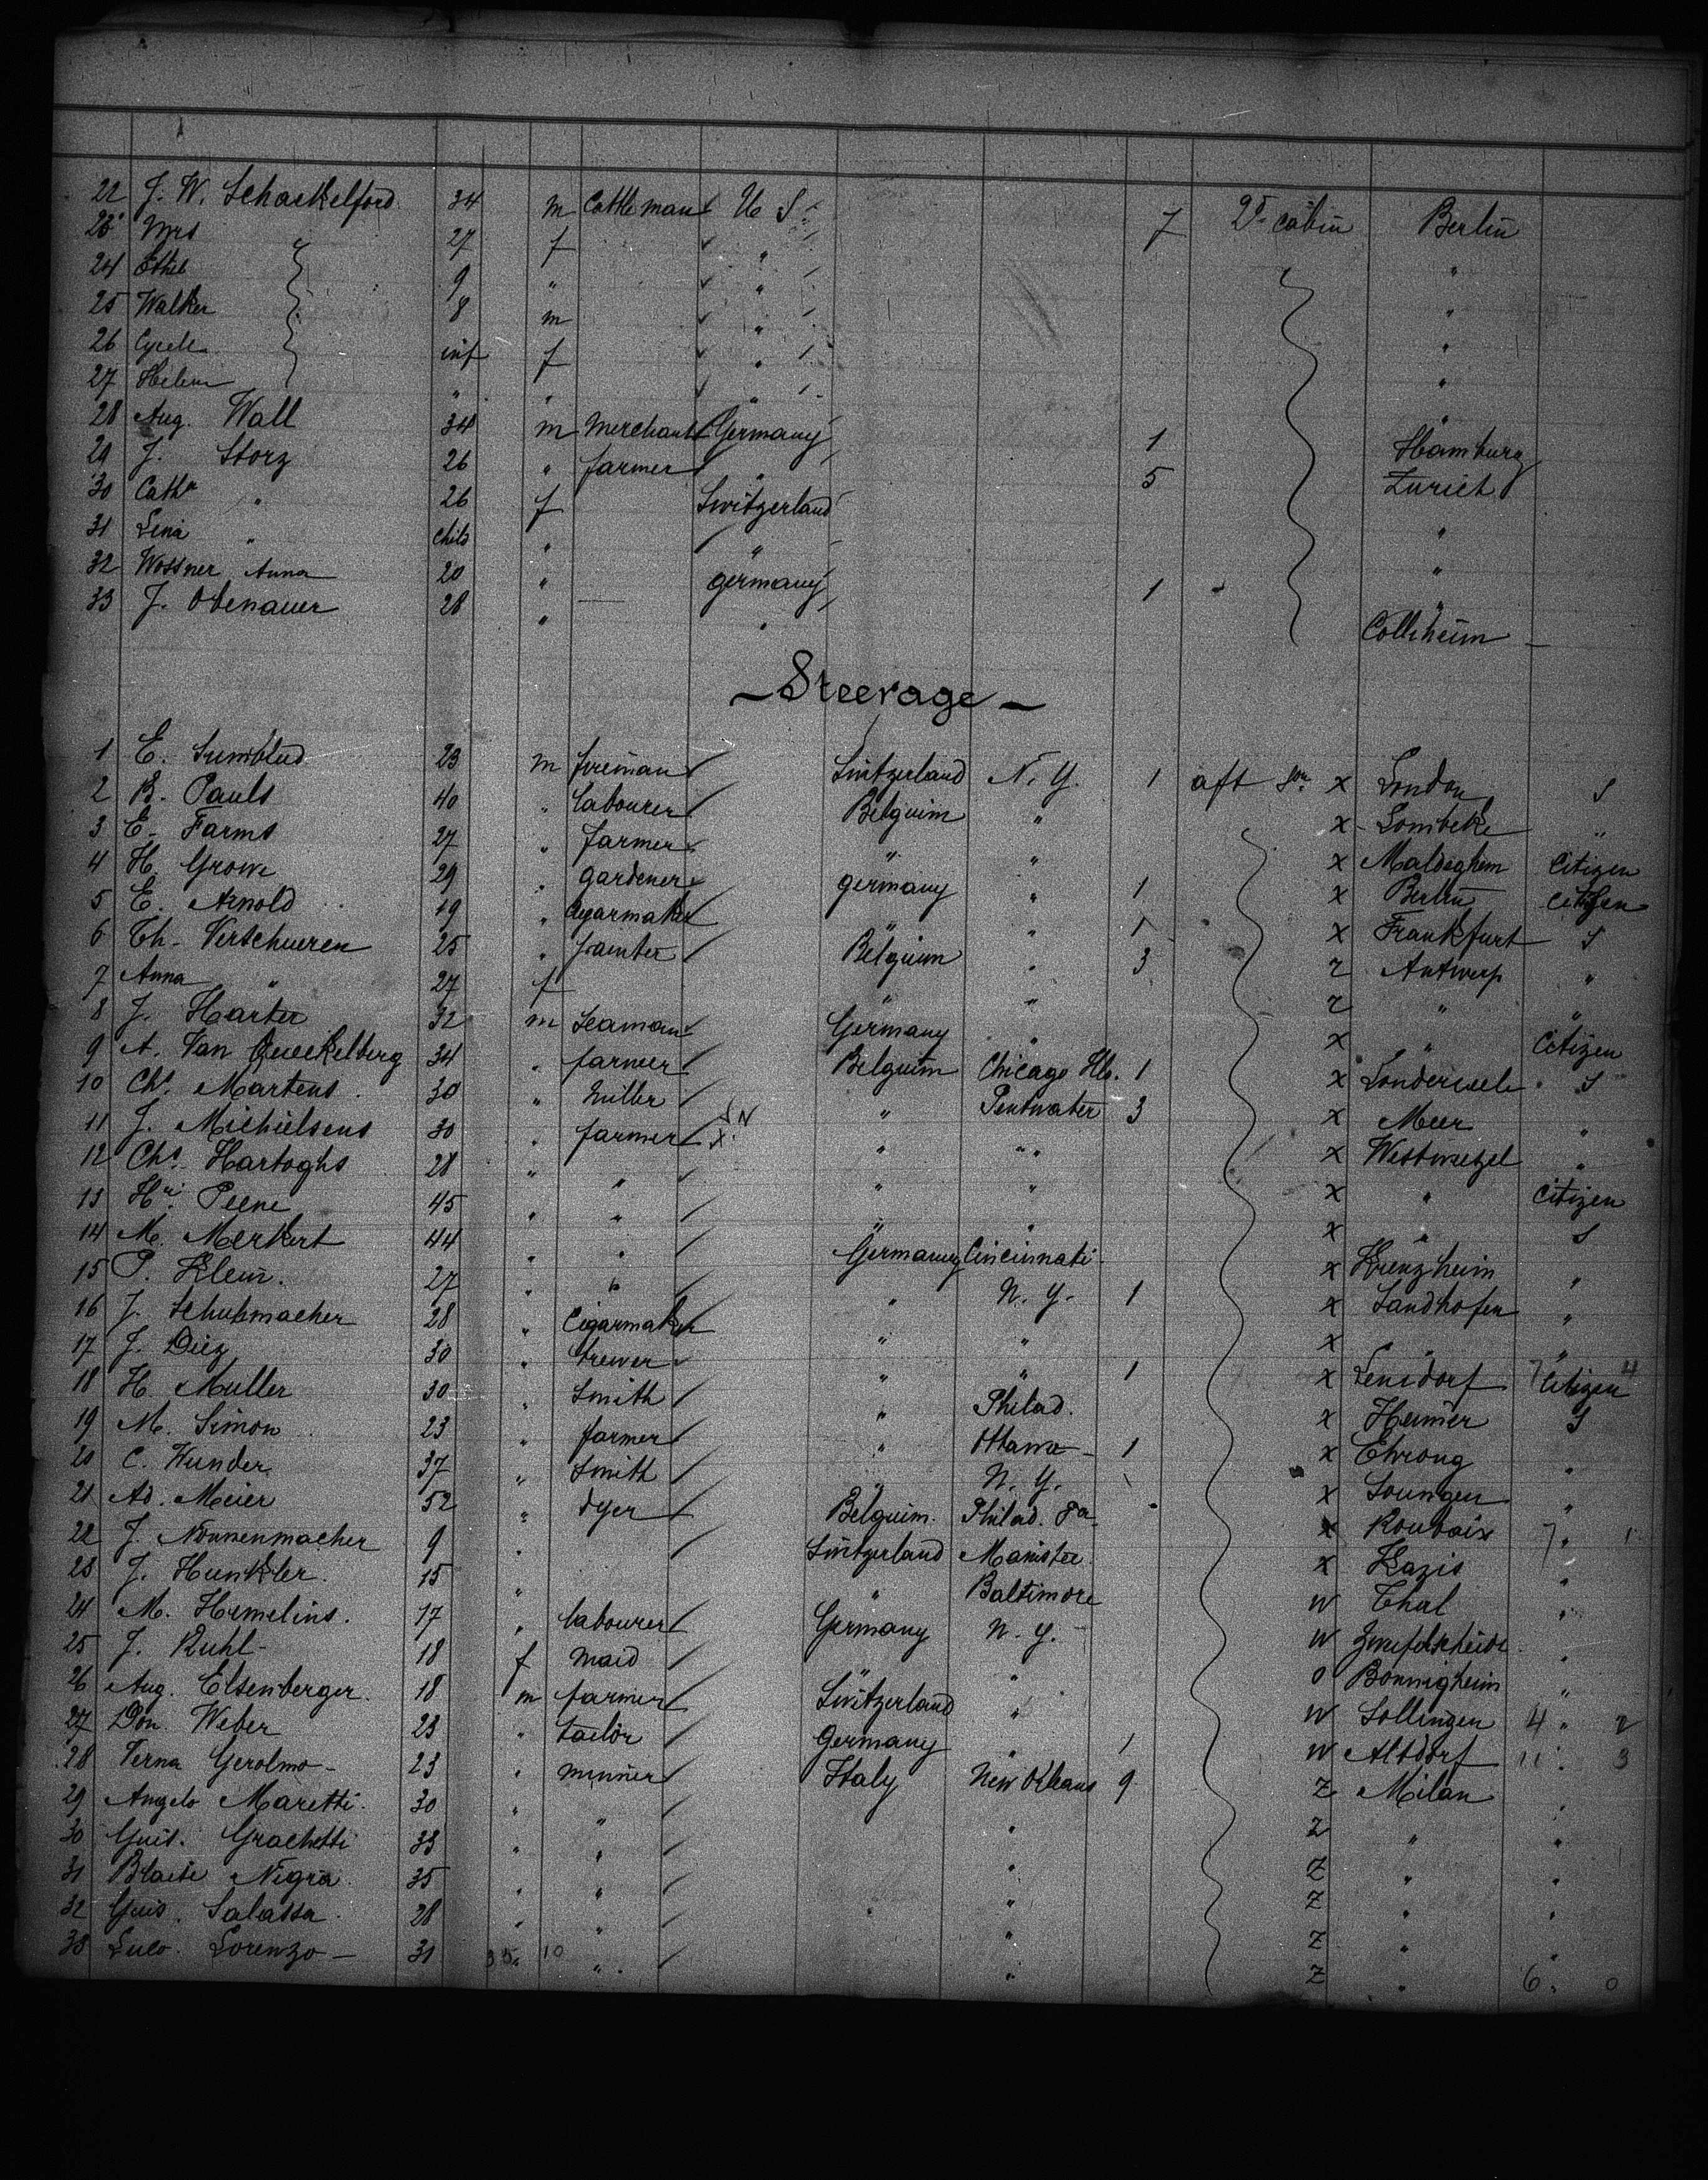 22 J. W. Schackelford 34 m Cattleman U S 7 2d cabin Berlin
23 Mrs 27 f " "
24 Ethel 9 " " "
25 Walker 8 m " "
26 Cycele inf f " "
27 Helene " " " "
28 Aug. Wall 34 m Merchant Germany 1 Hamburg
29 J. Storz 26 " farmer " 5 Zurich
30 Cath " 26 f Switzerland "
31 Lena " child " " "
32 Wossner Anna 20 " germany 1 "
33 J. Obenauer 28 " — " Colliheim
Steerage
1 E. 23 m fireman Switzerland N. Y. 1 aft x London S
2 B. Pauls 40 " labourer Belguim " x Lombeke "
3 E. Farms 27 " farmer " " x Maldeghem Citizen
4 H. Growe 29 " gardener germany " 1 x Berlin Citizen
5 E. Arnold 19 " Cigarmaker " " 1 x Frankfurt S
6 Th. Verschueren 25 " painter Belguim " 3 z Antwerp "
7 Anna " 27 f " " z " "
8 J. Harter 32 m Seaman Germany " x " Citizen
9 A. Van Queckelberg 34 " farmer Belguim Chicago Ills. 1 x Londerzeele S
10 Chs. Martens 30 " Miller " Pentwater 3 x Meer "
11 J. Michielsens 30 " farmer " " x Westwezel "
12 Chs. Hartoghs 28 " " " " x " Citizen
13 Hri. Peene 45 " " " " x " S
14 M. Merkert 44 " " Germany Cincinnati x Krenzheim "
15 P. Klein. 27 " " " N. Y. 1 x Sandhofen "
16 J. Schuhmacher 28 " Cigarmaker " " x " "
17 J. Diez 30 " brewer " " 1 x Lensdorf 7 Citizen 4
18 H. Muller 30 " Smith " Philad. x Heimer S
19 M. Simon 23 " farmer " Ottawa 1 x Ehrang "
20 C. Wunder 37 " Smith " N. Y. x Soungen "
21 Ad. Meier 52 " dyer Belguim. Philad. Pa x Roubaix 7 " 1
22 J. Nonnenmacher 9 " Switzerland Manistee x Kazis "
23 J. Hunkler. 15 " " Baltimore w Thal "
24 M. Hemelins. 17 " labourer Germany N. Y. w "
25 J. Ruhl 18 f Maid " " o Bonnigheim "
26 Aug. Elsenberger. 18 m farmer Switzerland " w Sollingen 4 " 2
27 Don. Weber 23 " tailor Germany " 1 w Altdorf 11 " 3
28 Verna Gerolmo 23 " minner Italy New Orleans 9 z Milan "
29 Angelo Maretti. 30 " " " z " "
30 Guis. Grachetti 33 " " " z " "
31 Blaise Nigra 35 " " " z " "
32 Guis. Salassa 28 " " " " z " "
33 Luco. Lorenzo 31 35 10 " " z " 6 " 0